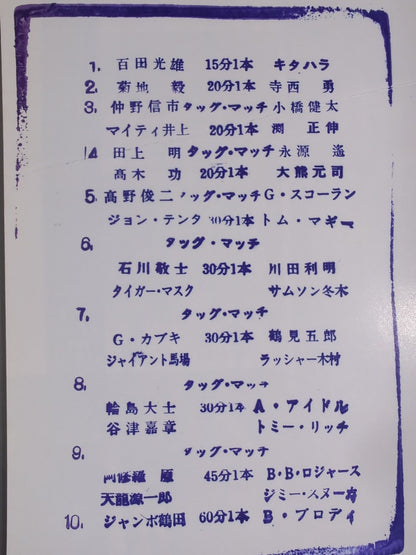 1. 百田光雄 15分1本 キタハラ
2. 菊地 毅 20分1本 寺西 勇
3. 仲野信市 タッグ・マッチ 小橋健太
マイティ井上 20分1本 渕 正伸
4 田上 明 タッグ・マッチ 永源 遙
高木 功 20分1本 大熊元司
5 高野俊二 タッグ・マッチ G・スコーラン
ジョン・テンタ 30分1本 トム・マギー
6. タッグ・マッチ
石川敬士 30分1本 川田利明
タイガー・マスク サムソン冬木
7. タッグ・マッチ
G・カブキ 30分1本 鶴見五郎
ジャイアント馬場 ラッシャー木村
8. タッグ・マッチ
輪島大士 30分1本 A・アイドル
谷津嘉章 トミー・リッチ
9. タッグ・マッチ
阿修羅 原 45分1本 B・B・ロジャース
天龍源一郎 ジミー・スヌーカ
10. ジャンボ鶴田 60分1本 B・ブロディ